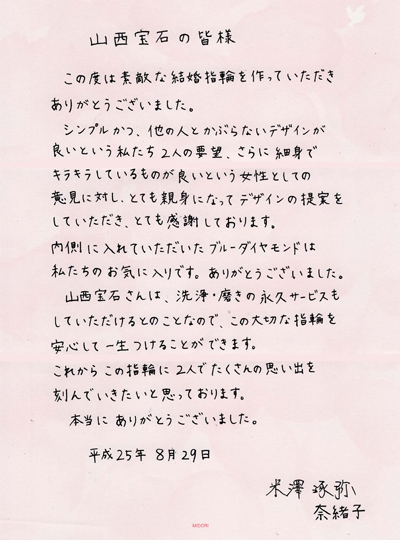 山西宝石の皆様
この度は素敵な結婚指輪を作っていただき
ありがとうございました。
シンプルかつ、他の人とかぶらないデザインが
良いという私たち2人の要望、さらに細身で
キラキラしているものが良いという女性としての
意見に対し、とても親身になってデザインの提案を
していただき、とても感謝しております。
内側に入れていただいたブルーダイヤモンドは
私たちのお気に入りです。ありがとうございました。
山西宝石さんは、洗浄・磨きの永久サービスも
していただけるとのことなので、この大切な指輪を
安心して一生つけることができます。
これからこの指輪に2人でたくさんの思い出を
刻んでいきたいと思っております。
本当にありがとうございました。
平成25年 8月29日
米澤 琢弥
奈緒子
MIDORI